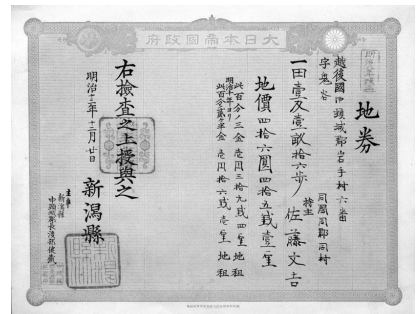 大日本帝國政府
地券
越後國中頸城郡岩手村六番
字鬼谷
一田壹反壹畝拾六歩
同國同郡同村
持主 佐藤丈吉
地價四拾六圓四拾五銭壹厘
此百分ノ三金 壱円三拾九銭四厘 地租
明治十年ヨリ
此百分ノ貳ヶ半金 壱円拾六銭壱厘 地租
右檢査之上授與之
明治十二年十二月廿日
新潟縣
主事
新潟縣
中頸城郡長